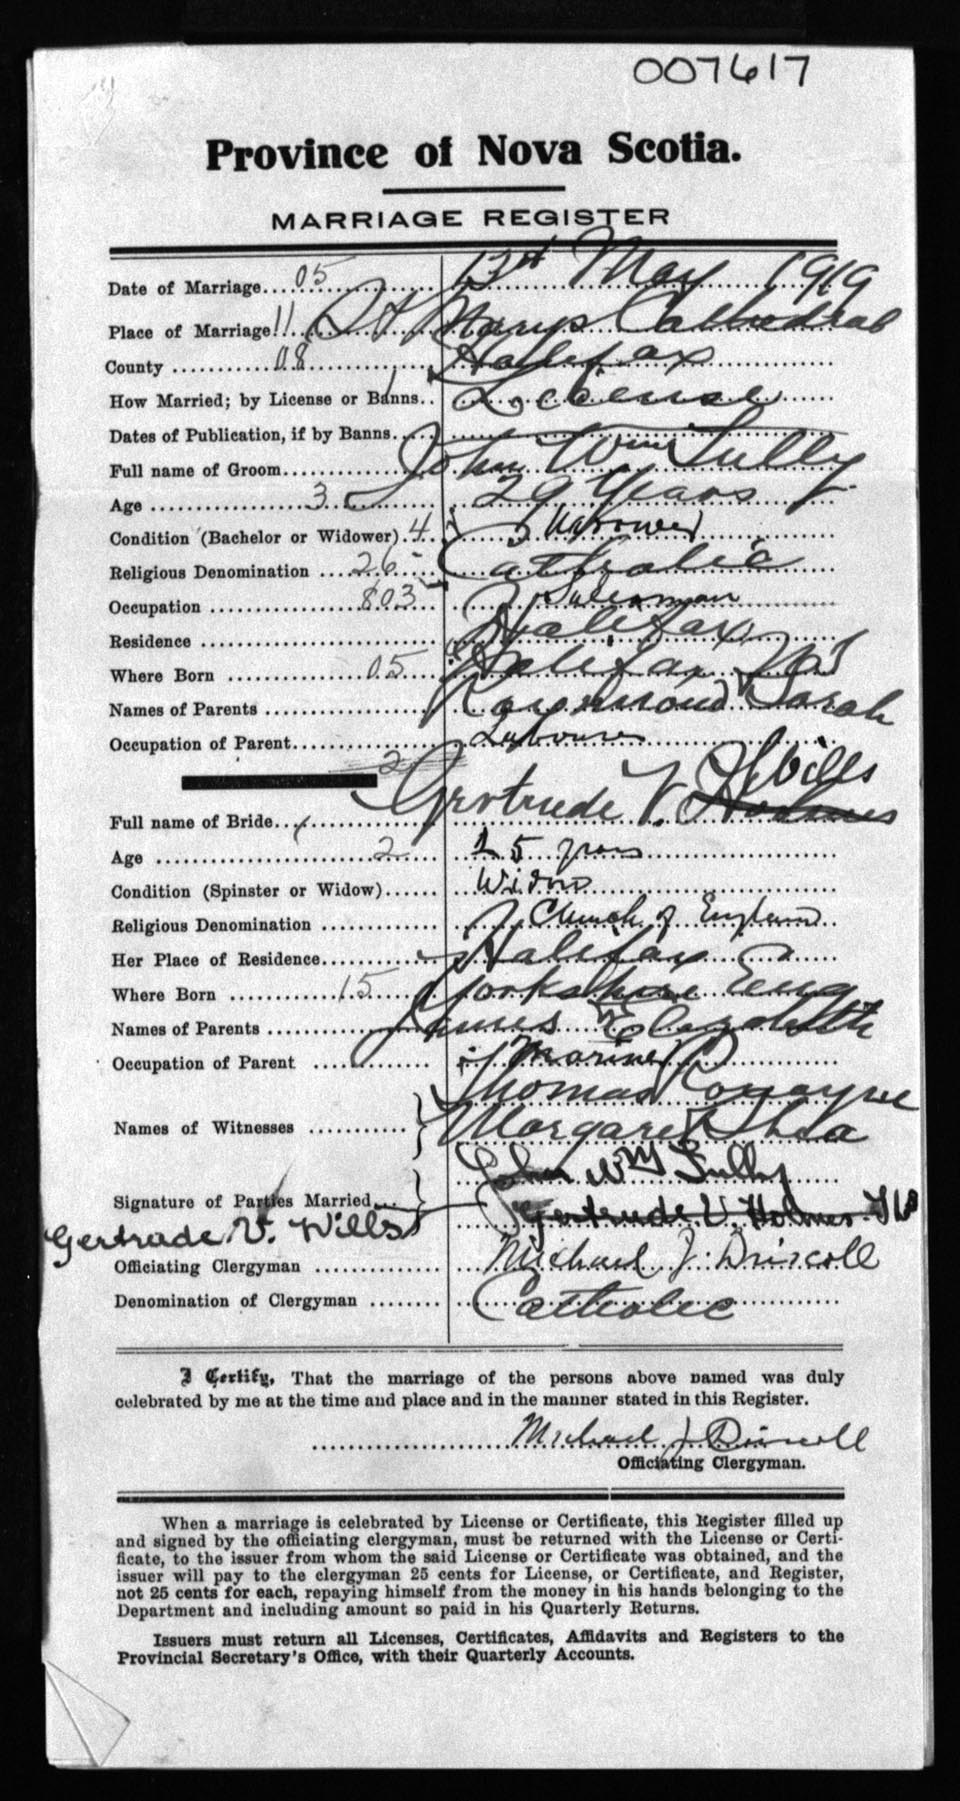 007617
Province of Nova Scotia.
MARRIAGE REGISTER
Date of Marriage 05 13th May 1919
Place of Marriage 11 St Marys Cathedral
County 08 Halifax
How Married; by License or Banns 1 License
Dates of Publication, if by Banns
Full name of Groom John Wm Tully
Age 3 29 Years
Condition (Bachelor or Widower) 4 Widower
Religious Denomination 26 Catholic
Occupation 803
Residence Halifax
Where Born 05 Halifax NS
Names of Parents Raymond Sarah
Occupation of Parent Labourer
2 Wills
Full name of Bride Gertrude V. Holmes
Age 2 25 years
Condition (Spinster or Widow) Widow
Religious Denomination Church of England
Her Place of Residence Halifax
Where Born 15 Yorkshire Eng
Names of Parents James Elizabeth
Occupation of Parent Mariner
Thomas Ronayne
Names of Witnesses
Margaret Shea
John Wm Tully
Signature of Parties Married
Gertrude V. Wills Gertrude V. Holmes
Officiating Clergyman Michael J. Driscoll
Denomination of Clergyman Catholic
I Certify, That the marriage of the persons above named was duly
celebrated by me at the time and place and in the manner stated in this Register.
Michael J Driscoll
Officiating Clergyman.
When a marriage is celebrated by License or Certificate, this Register filled up
and signed by the officiating clergyman, must be returned with the License or Certi-
ficate, to the issuer from whom the said License or Certificate was obtained, and the
issuer will pay to the clergyman 25 cents for License, or Certificate, and Register,
not 25 cents for each, repaying himself from the money in his hands belonging to the
Department and including amount so paid in his Quarterly Returns.
Issuers must return all Licenses, Certificates, Affidavits and Registers to the
Provincial Secretary's Office, with their Quarterly Accounts.